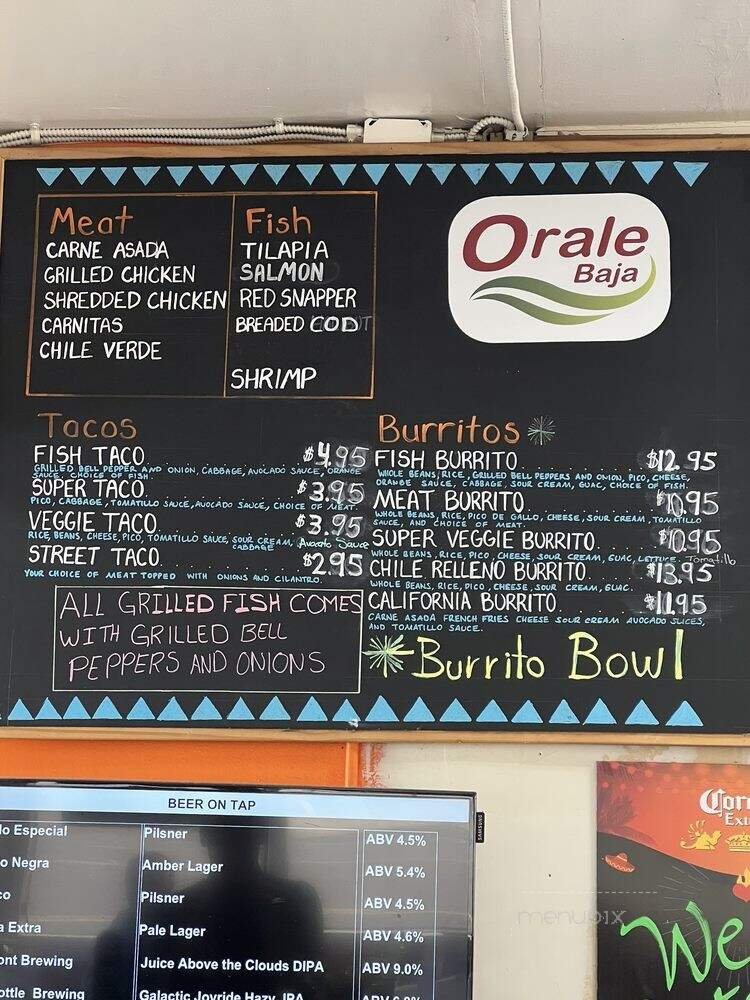 Orale
Baja
Meat
CARNE ASADA
GRILLED CHICKEN
SHREDDED CHICKEN
CARNITAS
CHILE VERDE
Fish
TILAPIA
SALMON
RED SNAPPER
BREADED COD
SHRIMP
Tacos
FISH TACO $4.95
GRILLED BELL PEPPER AND ONION, CABBAGE, AVOCADO SAUCE, ORANGE
SAUCE, CHOICE OF FISH.
SUPER TACO $3.95
PICO, CABBAGE, TOMATILLO SAUCE, AVOCADO SAUCE, CHOICE OF MEAT.
VEGGIE TACO $3.95
RICE, BEANS, CHEESE, PICO, TOMATILLO SAUCE, SOUR CREAM, Avocado Sauce
CABBAGE
STREET TACO $2.95
YOUR CHOICE OF MEAT TOPPED WITH ONIONS AND CILANTRO.
ALL GRILLED FISH COMES
WITH GRILLED BELL
PEPPERS AND ONIONS
Burritos
FISH BURRITO $12.95
WHOLE BEANS, RICE, GRILLED BELL PEPPERS AND ONION, PICO, CHEESE,
ORANGE SAUCE, CABBAGE, SOUR CREAM, GUAC, CHOICE OF FISH.
MEAT BURRITO $10.95
WHOLE BEANS, RICE, PICO DE GALLO, CHEESE, SOUR CREAM, TOMATILLO
SAUCE, AND CHOICE OF MEAT.
SUPER VEGGIE BURRITO $10.95
WHOLE BEANS, RICE, PICO, CHEESE, SOUR CREAM, GUAC, LETTUCE. Tomatillo
CHILE RELLENO BURRITO $13.95
WHOLE BEANS, RICE, PICO, CHEESE, SOUR CREAM, GUAC.
CALIFORNIA BURRITO $11.95
CARNE ASADA FRENCH FRIES CHEESE SOUR CREAM AVOCADO SLICES,
AND TOMATILLO SAUCE.
Burrito Bowl
BEER ON TAP
lo Especial Pilsner ABV 4.5%
o Negra Amber Lager ABV 5.4%
co Pilsner ABV 4.5%
a Extra Pale Lager ABV 4.6%
ont Brewing Juice Above the Clouds DIPA ABV 9.0%
ottle Brewing Galactic Joyride Hazy IPA
SAMSUNG
Coro
Ext
We
menupix